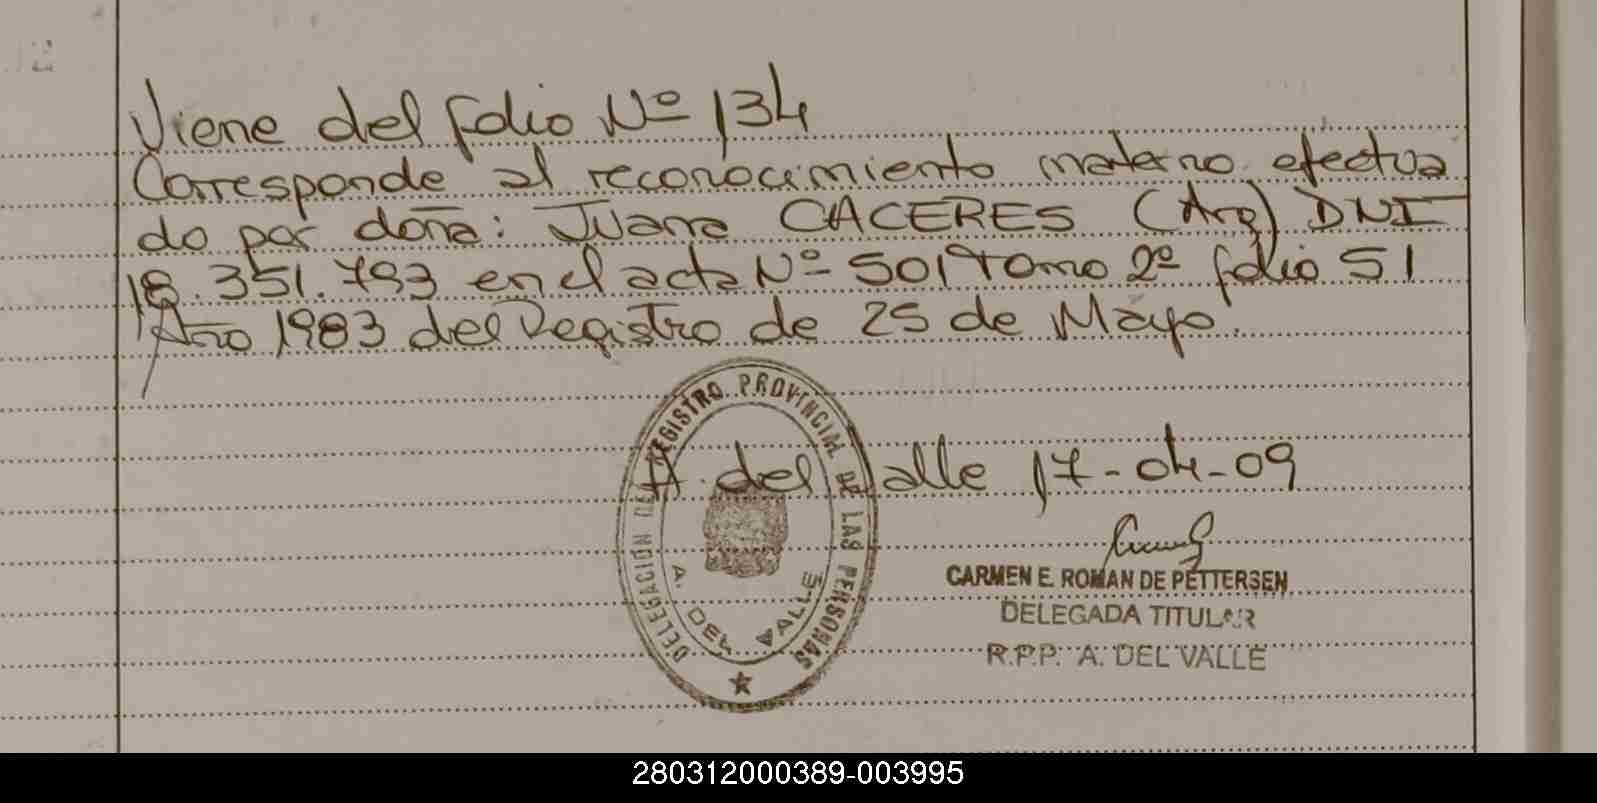 Viene del folio Nº 134
Corresponde al reconocimiento materno efectua
do por doña: Juana CACERES (Arg) DNI
18.351.793 en el acta Nº 501 Tomo 2º folio 51
Año 1983 del Registro de 25 de Mayo.
DELEGACION DE REGISTRO PROVINCIAL DE LAS PERSONAS
A. DEL VALLE
A. del Valle 17-04-09
CARMEN E. ROMAN DE PETTERSEN
DELEGADA TITULAR
R.P.P. A. DEL VALLE
280312000389-003995